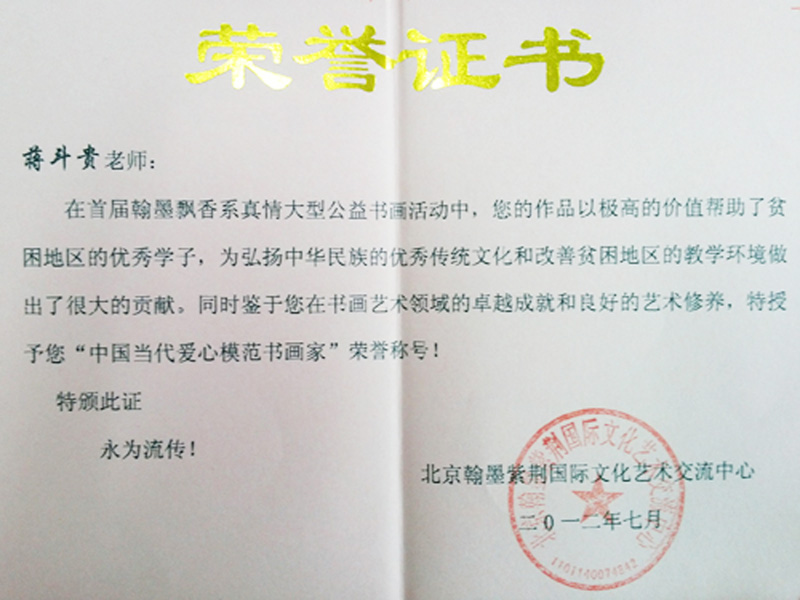 荣誉证书
蒋斗贵老师：
在首届翰墨飘香系真情大型公益书画活动中，您的作品以极高的价值帮助了贫
困地区的优秀学子，为弘扬中华民族的优秀传统文化和改善贫困地区的教学环境做
出了很大的贡献。同时鉴于您在书画艺术领域的卓越成就和良好的艺术修养，特授
予您“中国当代爱心模范书画家”荣誉称号！
特颁此证
永为流传！
北京翰墨紫荆国际文化艺术交流中心
二0一二年七月
北京翰墨紫荆国际文化艺术交流中心
1101140074842